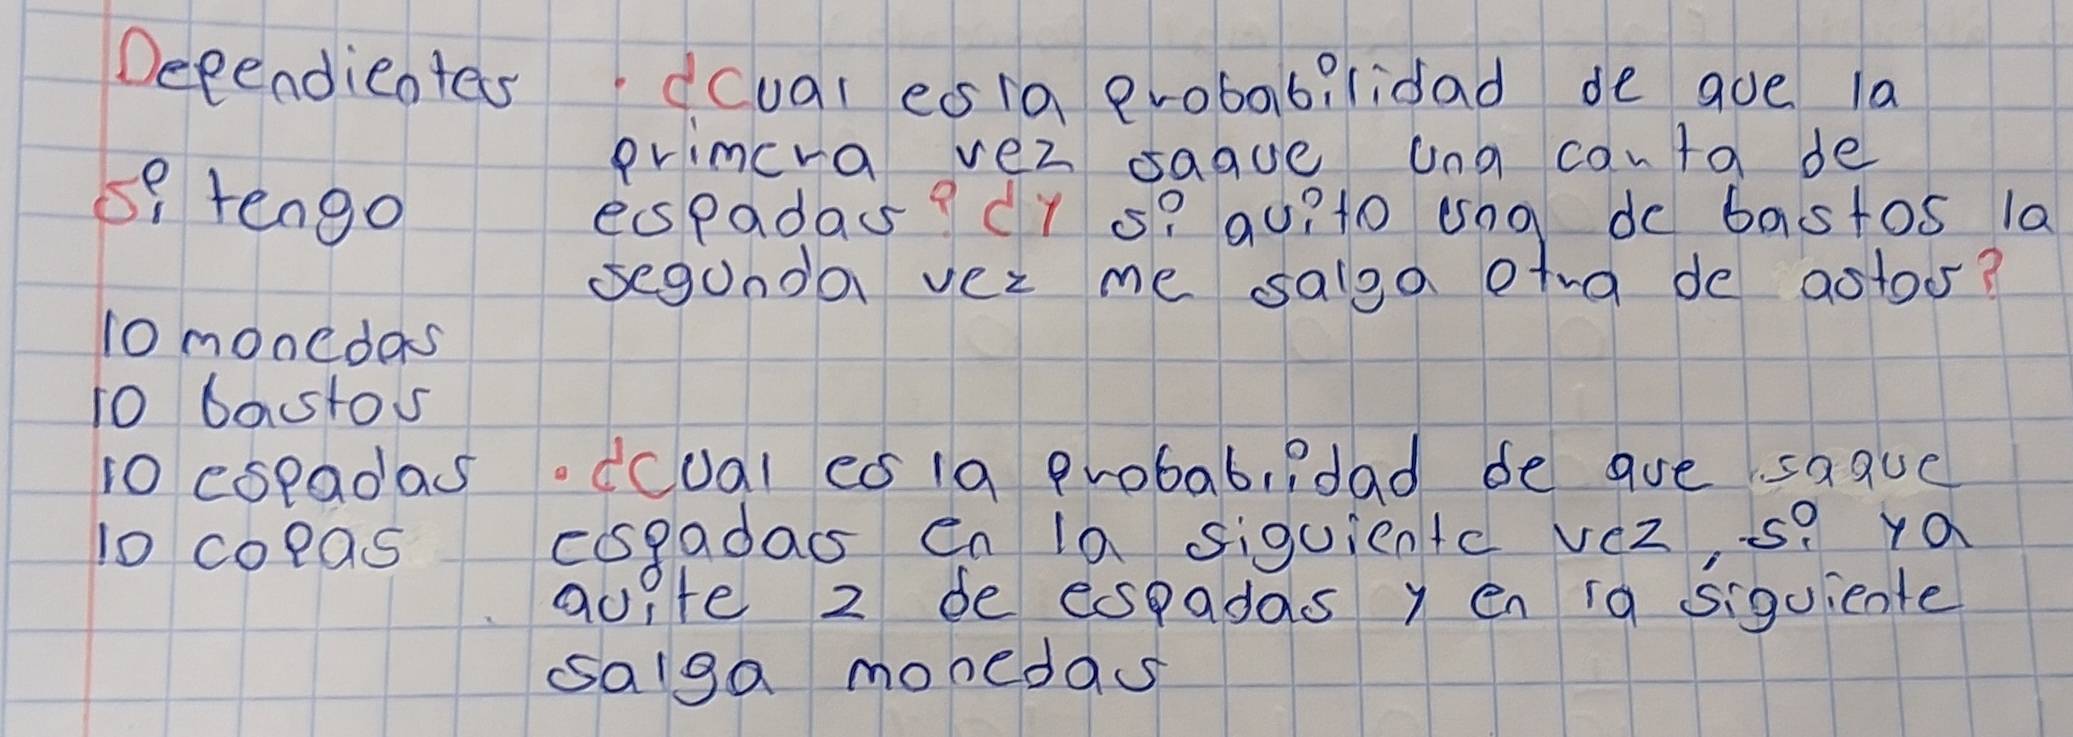 Dependientes
Si tengo
10 monedas
10 bastos
10 espadas
10 copas
· ¿Cual es la probabilidad de que la
primera vez saque una carta de
espadas? ¿Y si quito una de bastos la
segunda vez me salga otra de astos?
· ¿Cual es la probabiidad de que saque
espadas en la siguiente vez, si ya
quite 2 de espadas y en la siguiente
salga monedas